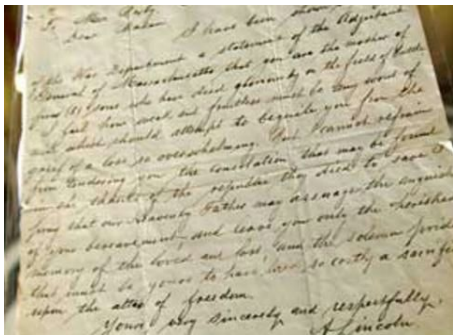 To Mrs Bixby
Dear Madam
I have been shown
of the War Department a statement of the Adjutant
General of Massachusetts, that you are the mother of
sons who have died gloriously on the field of battle
I feel how weak and fruitless must be any words of
which should attempt to beguile you from the
grief of a loss so overwhelming. But I cannot refrain
from tendering you the consolation that may be found
thanks of the republic they died to save
pray that our Heavenly Father may assuage the anguish
of your bereavement, and leave you only the cherished
memory of the loved and lost, and the solemn pride
that must be yours to have laid so costly a sacrifice
upon the altar of freedom.
Yours very sincerely and respectfully,
A. Lincoln